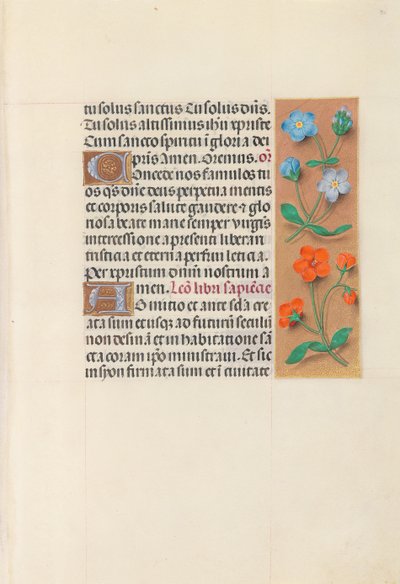 tu solus sanctus Tu solus dñs.
Tu solus altissimus ihũ xpriste
Cum sancto spiritu ĩ gloria dei
pr̃is Amen. Oremus. or̃
Concede nos famulos tu
os qs dñe deus perpetua mentis
et corporis salute gaudere & glo
riosa beate marie semper virgĩs
intercessione a presenti liberari
tristicia et eterna perfrui leticia.
Per xpristum dñm nostrum a
men. Lcõ libri sapiẽcie
Ab initio et ante scl̃a cre
ata sum et usqz ad futurũ seculũ
non desinã et in habitatione sã
cta coram ipso ministravi. Et sic
in syon firmata sum et ĩ civitate